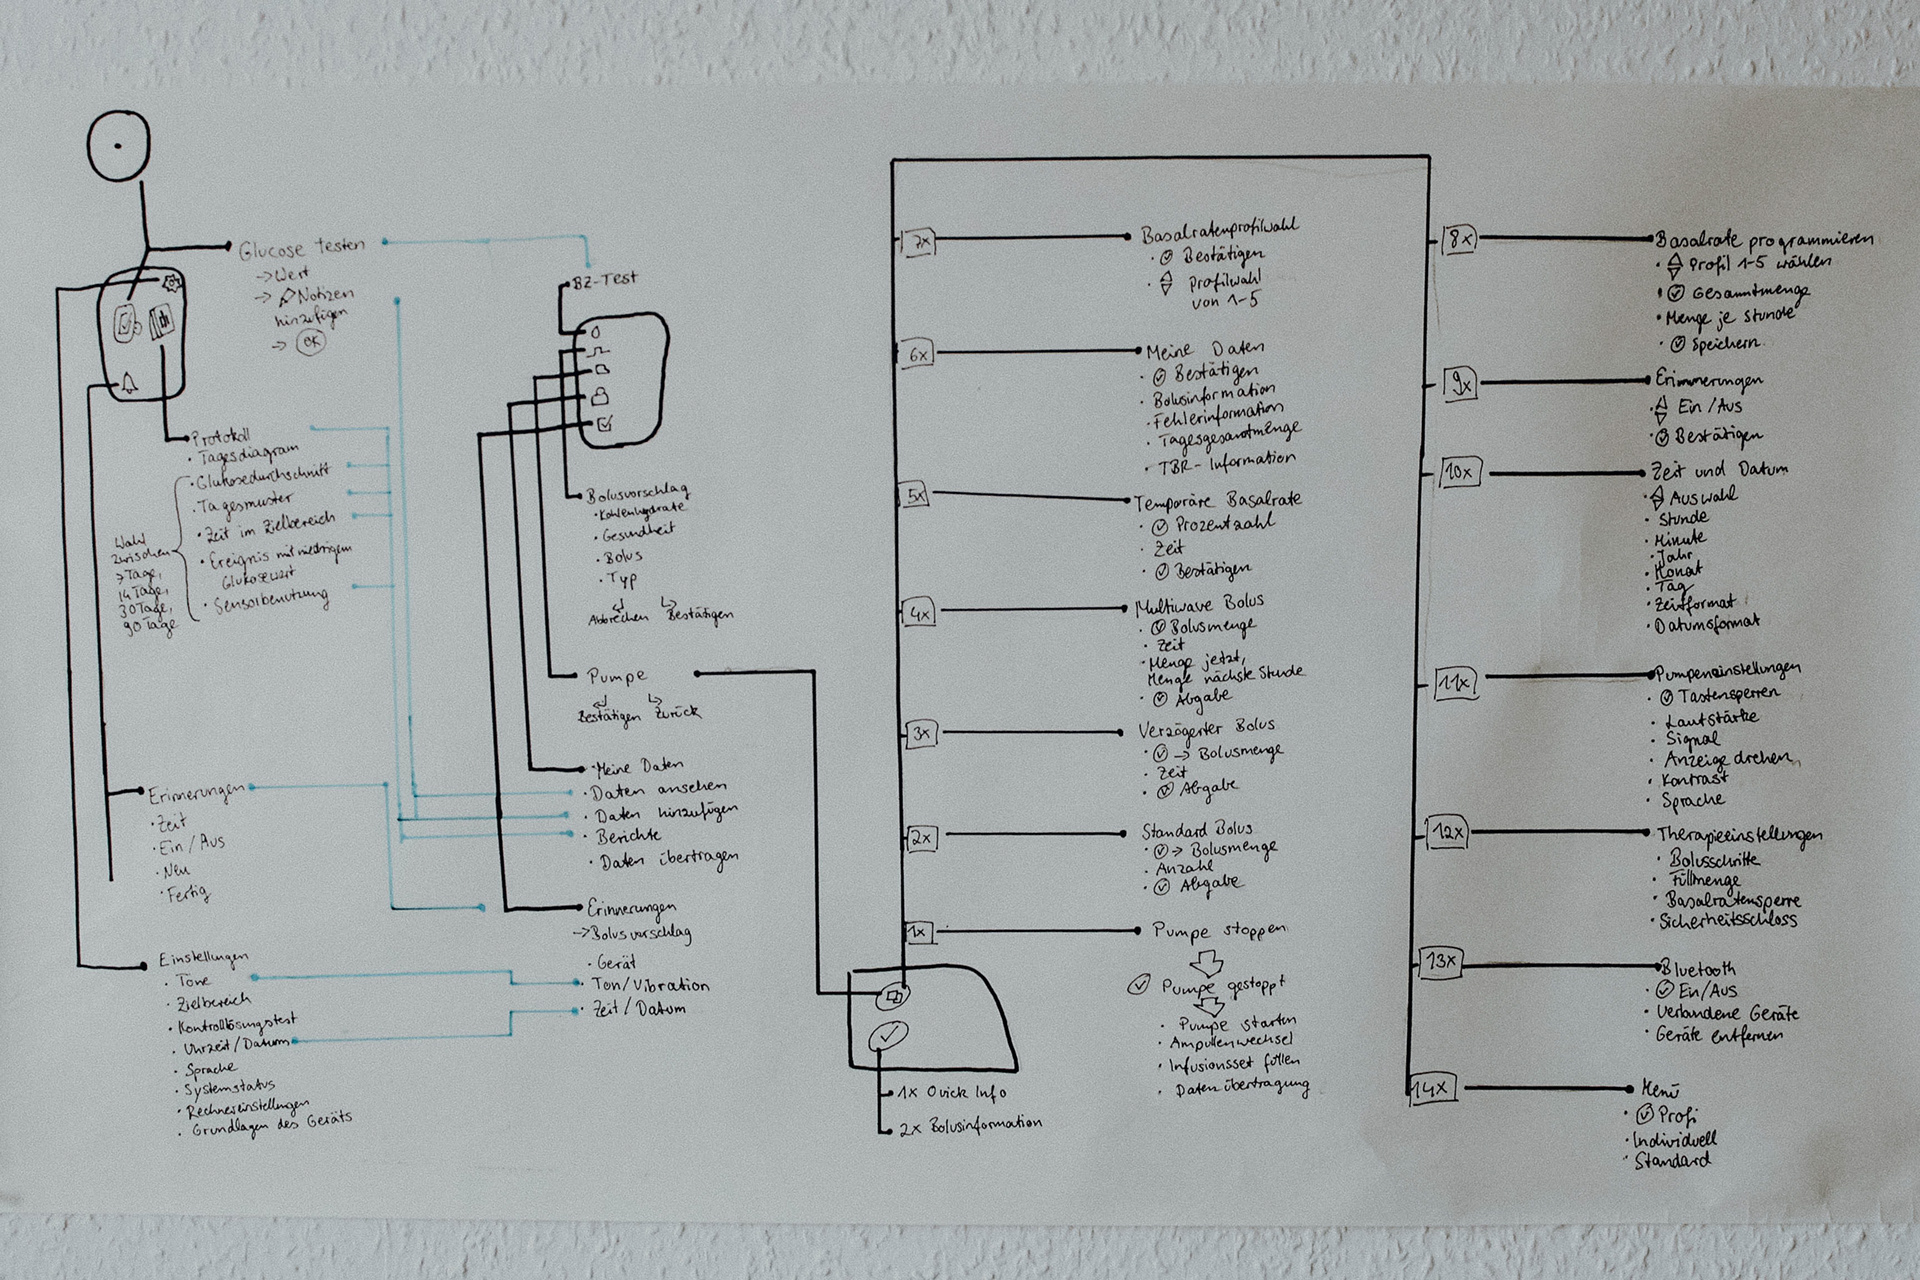 Glucose testen
→ Wert
→ Notizen
hinzufügen
→ OK
Protokoll
· Tagesdiagram
· Glukosedurchschnitt
· Tagesmuster
· Zeit im Zielbereich
· Ereignis mit niedrigem
Glukosewert
· Sensorbenutzung
Wahl
zwischen
7 Tage,
14 Tage,
30 Tage,
90 Tage
Erinnerungen
· Zeit
· Ein / Aus
· Neu
· Fertig
Einstellungen
· Töne
· Zielbereich
· Kontrolllösungstest
· Uhrzeit / Datum
· Sprache
· Systemstatus
· Rechnereinstellungen
· Grundlagen des Geräts
BZ-Test
Bolusvorschlag
· Kohlenhydrate
· Gesundheit
· Bolus
· Typ
Abbrechen Bestätigen
Pumpe
Bestätigen Zurück
Meine Daten
· Daten ansehen
· Daten hinzufügen
· Berichte
· Daten übertragen
Erinnerungen
→ Bolusvorschlag
· Gerät
· Ton/Vibration
· Zeit / Datum
1x Quick Info
2x Bolusinformation
7x
Basalratenprofilwahl
· Bestätigen
· Profilwahl
von 1-5
6x
Meine Daten
· Bestätigen
· Bolusinformation
· Fehlerinformation
· Tagesgesamtmenge
· TBR-Information
5x
Temporäre Basalrate
· Prozentzahl
· Zeit
· Bestätigen
4x
Multiwave Bolus
· Bolusmenge
· Zeit
· Menge jetzt,
Menge nächste Stunde
· Abgabe
3x
Verzögerter Bolus
· → Bolusmenge
· Zeit
· Abgabe
2x
Standard Bolus
· → Bolusmenge
· Anzahl
· Abgabe
1x
Pumpe stoppen
Pumpe gestoppt
· Pumpe starten
· Ampullenwechsel
· Infusionsset füllen
· Datenübertragung
8x
Basalrate programmieren
· Profil 1-5 wählen
· Gesamtmenge
· Menge je Stunde
· Speichern
9x
Erinnerungen
· Ein / Aus
· Bestätigen
10x
Zeit und Datum
· Auswahl
· Stunde
· Minute
· Jahr
· Monat
· Tag
· Zeitformat
· Datumsformat
11x
Pumpeneinstellungen
· Tastensperren
· Lautstärke
· Signal
· Anzeige drehen
· Kontrast
· Sprache
12x
Therapieeinstellungen
· Bolusschritte
· Füllmenge
· Basalratensperre
· Sicherheitsschloss
13x
Bluetooth
· Ein/Aus
· Verbundene Geräte
· Geräte entfernen
14x
Menü
· Profi
· Individuell
· Standard